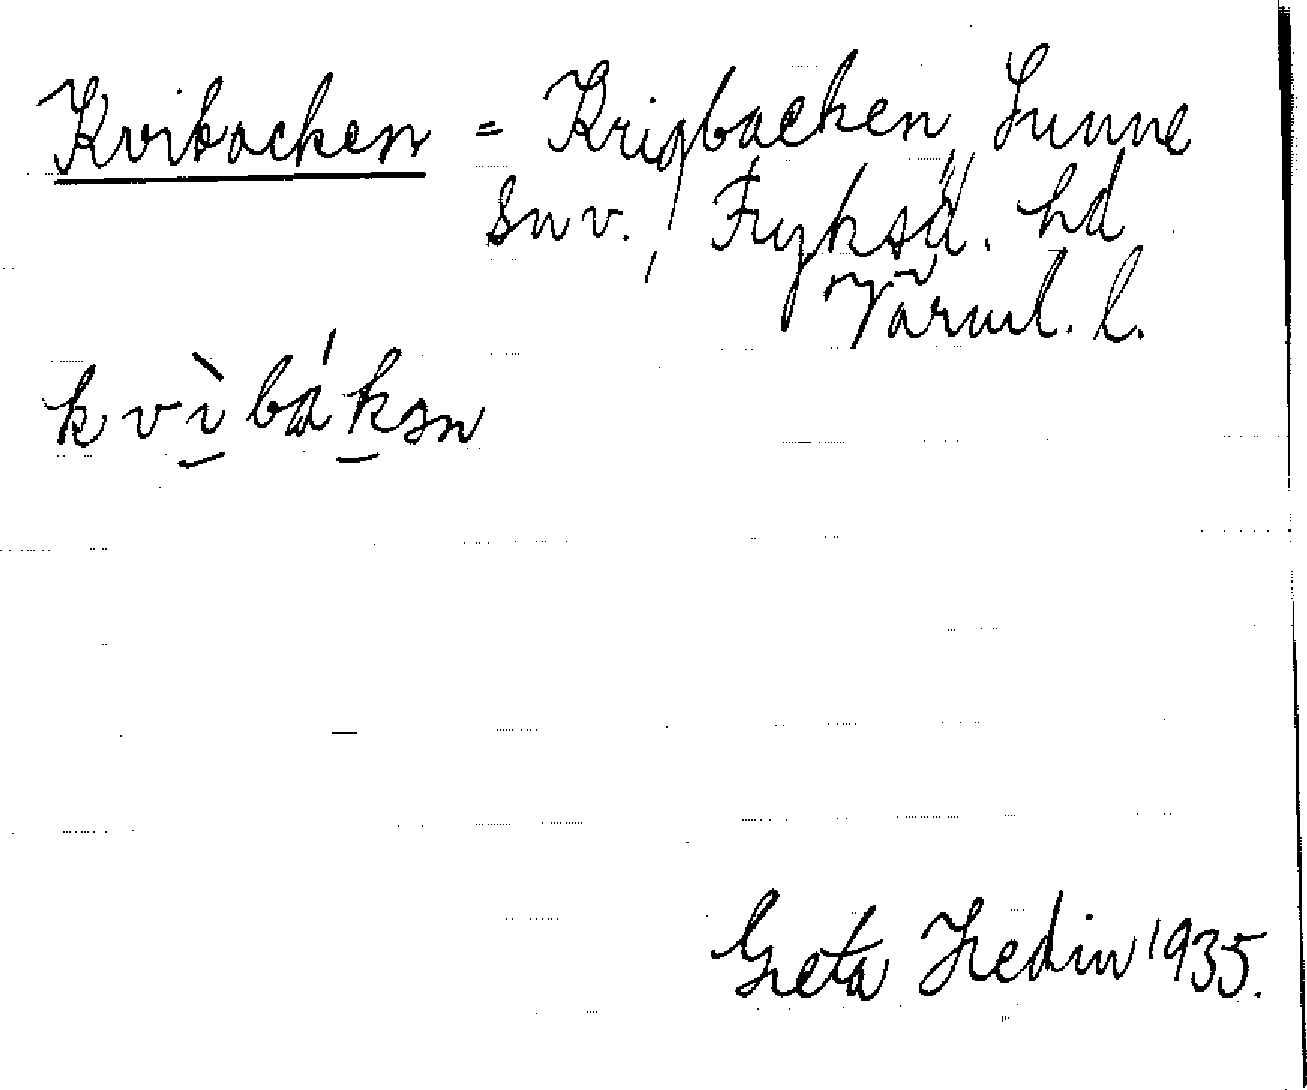 Kvibacken = Krigbacken, Sunne
snv., Fryksd. hd
Värml. l.
kvìbákən
Greta Hedin 1935.